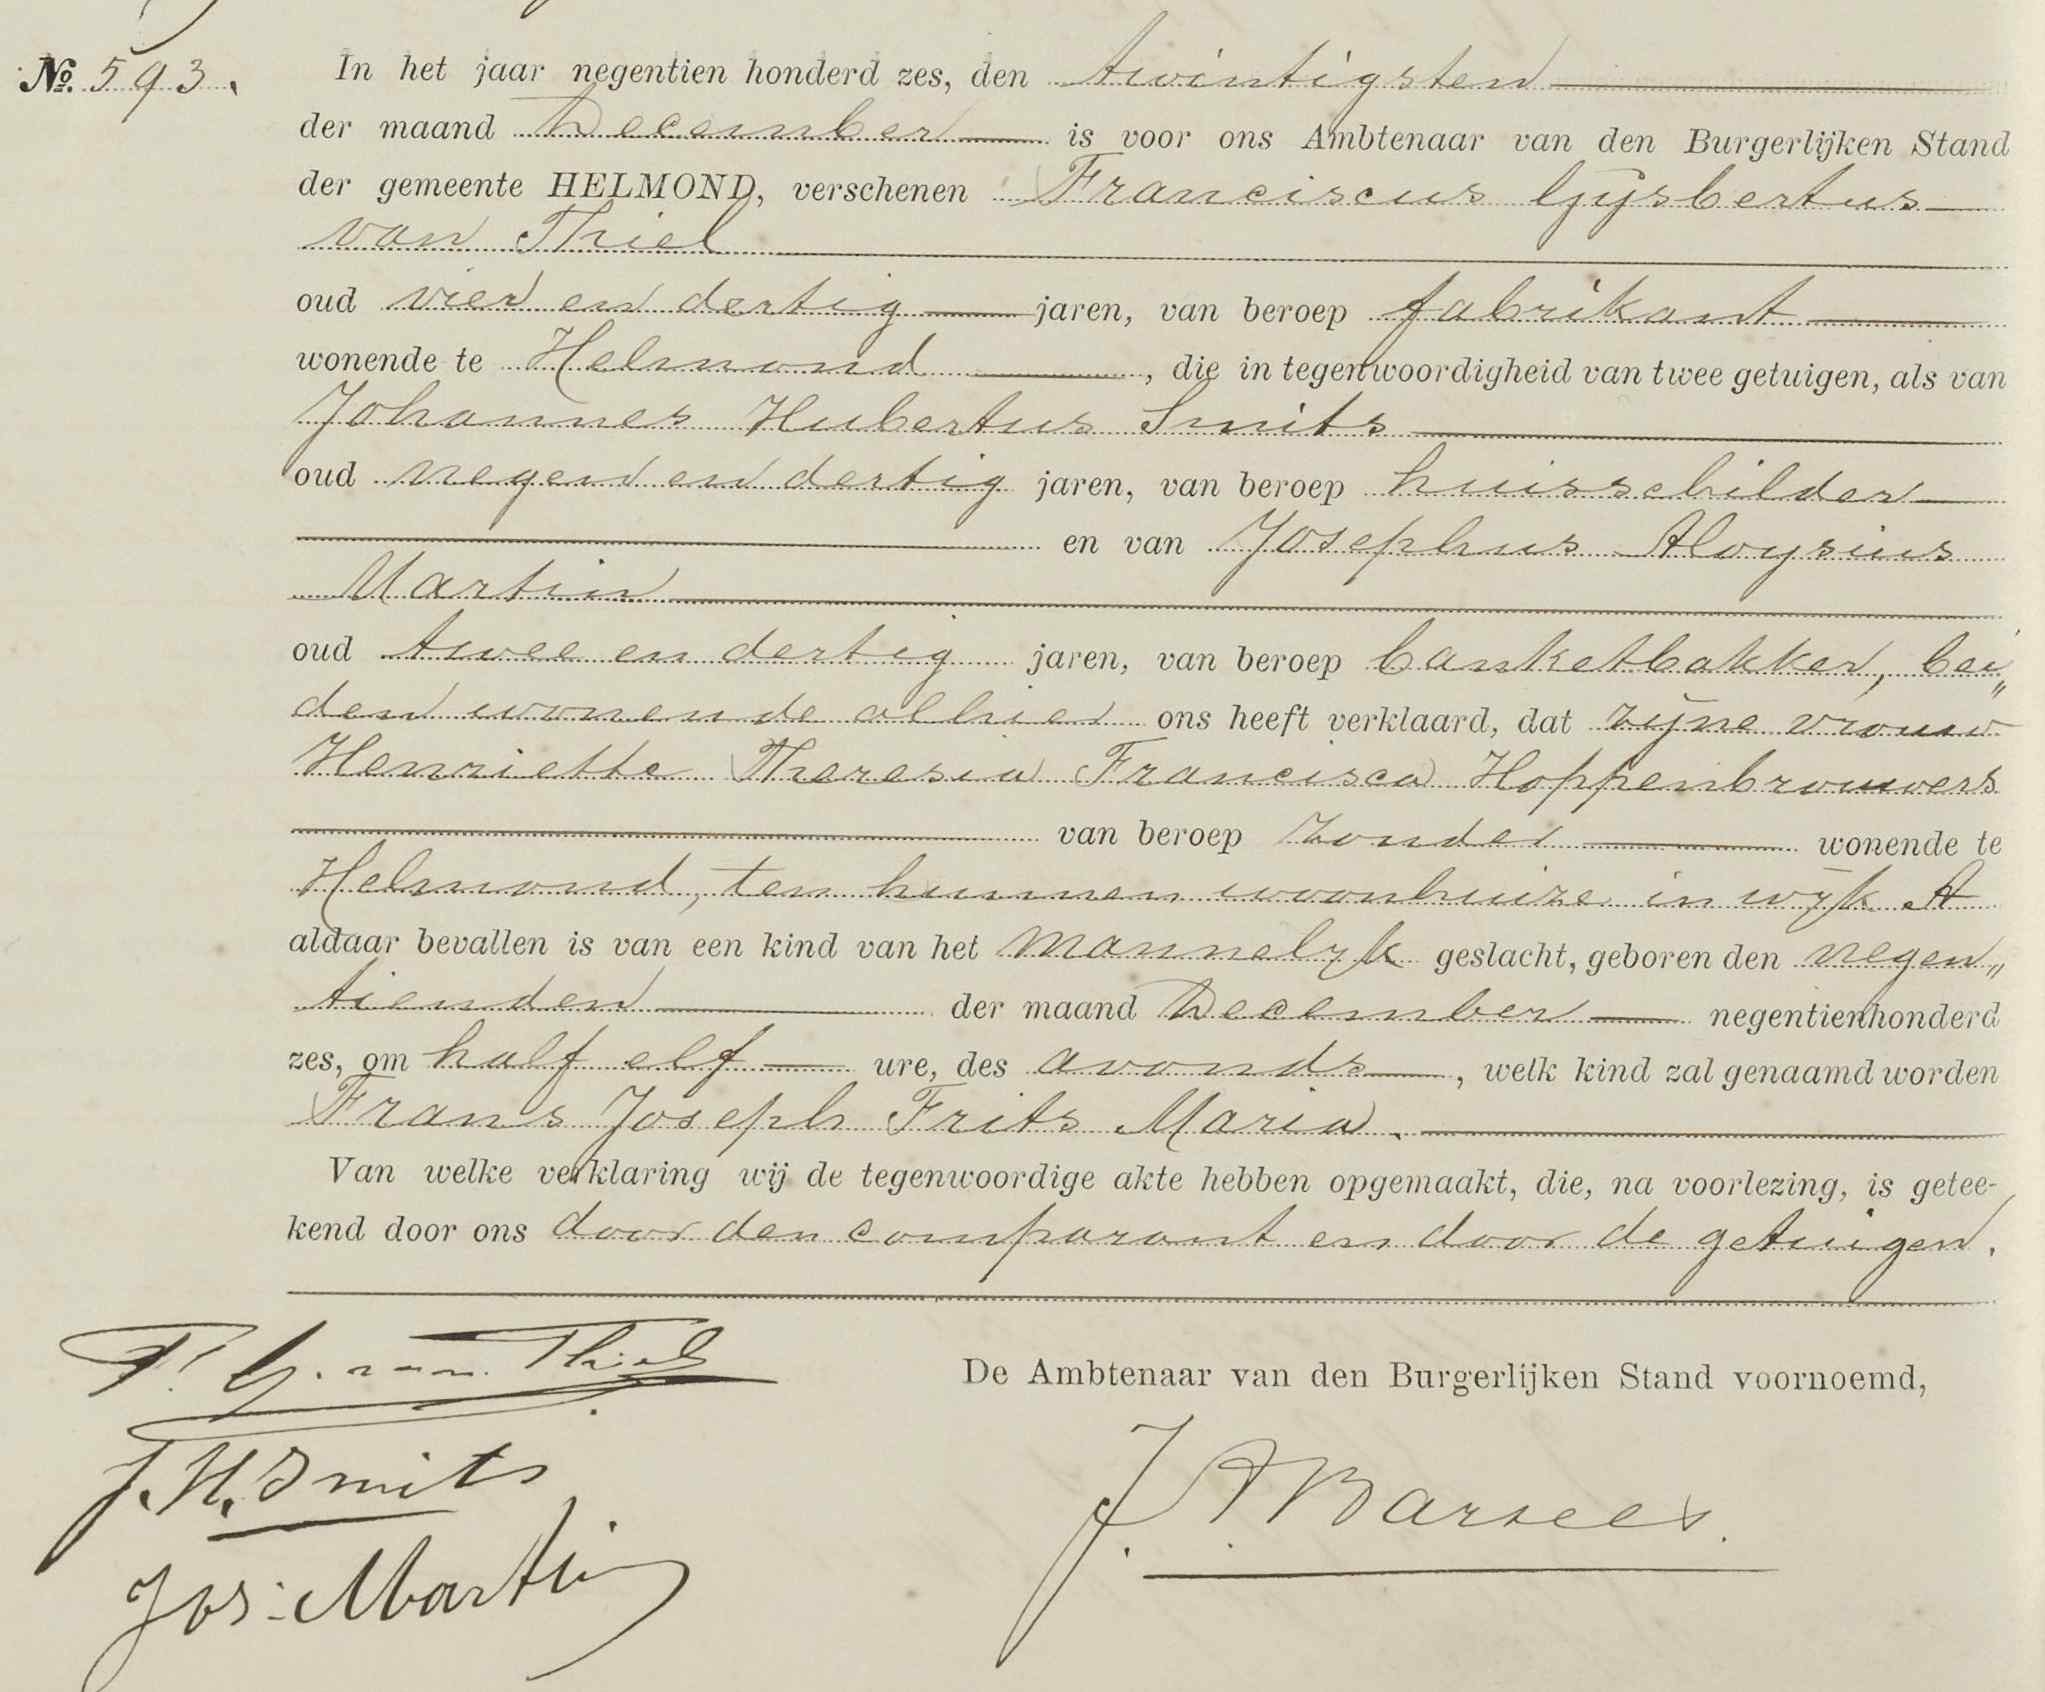 No. 593.
In het jaar negentien honderd zes, den twintigsten
der maand December is voor ons Ambtenaar van den Burgerlijken Stand
der gemeente HELMOND, verschenen Franciscus Gijsbertus
van Thiel
oud vier en dertig jaren, van beroep fabrikant
wonende te Helmond, die in tegenwoordigheid van twee getuigen, als van
Johannes Hubertus Smits
oud negen en dertig jaren, van beroep huisschilder
en van Josephus Aloysius
Martin
oud twee en dertig jaren, van beroep banketbakker, bei„
den wonende alhier ons heeft verklaard, dat zijne vrouw
Henriette Theresia Francisca Hoppenbrouwers
van beroep zonder wonende te
Helmond, ten hunnen woonhuize in wijk A
aldaar bevallen is van een kind van het mannelyk geslacht, geboren den negen„
tienden der maand December negentienhonderd
zes, om half elf ure, des avonds, welk kind zal genaamd worden
Frans Joseph Frits Maria.
Van welke verklaring wij de tegenwoordige akte hebben opgemaakt, die, na voorlezing, is getee-
kend door ons door den comparant en door de getuigen.
F. G. van Thiel
De Ambtenaar van den Burgerlijken Stand voornoemd,
J. H. Smits
Jos: Martin